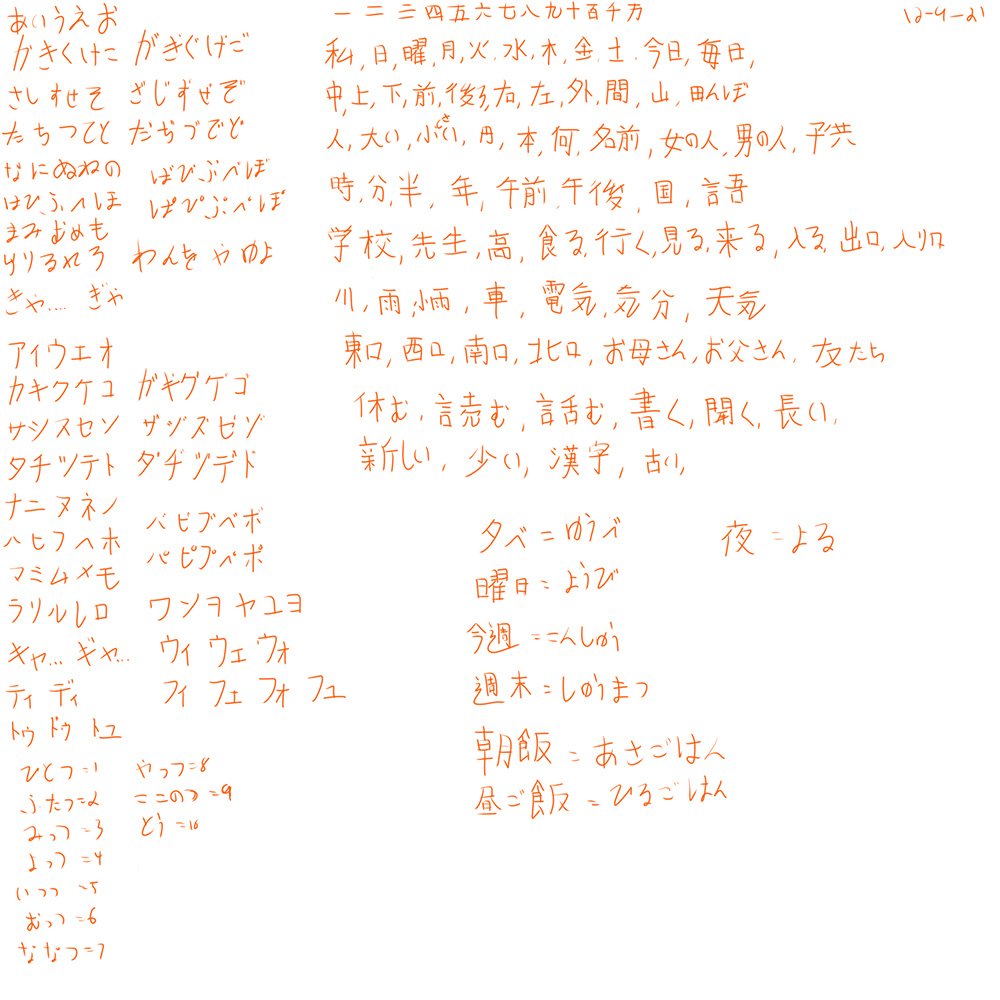 あいうえお
かきくけこ がぎぐげご
さしすせそ ざじずぜぞ
たちつてと だぢづでど
なにぬねの ばびぶべぼ
はひふへほ ぱぴぷぺぽ
まみむめも
らりるれろ わんを やゆよ
きゃ.... ぎゃ
アイウエオ
カキクケコ ガギグゲゴ
サシスセソ ザジズゼゾ
タチツテト ダヂヅデド
ナニヌネノ バビブベボ
ハヒフヘホ パピプペポ
マミムメモ
ラリルレロ ワンヲヤユヨ
キャ... ギャ... ウィ ウェ ウォ
ティ ディ フィ フェ フォ フュ
トゥ ドゥ トュ
ひとつ=1 やっつ=8
ふたつ=2 ここのつ=9
みっつ=3 とう=10
よっつ=4
いつつ=5
むっつ=6
ななつ=7
一二三四五六七八九十百千万
12-9-21
私,日,曜,月,火,水,木,金,土,今日,毎日,
中,上,下,前,後ろ,右,左,外,間,山,田んぼ
人,大い,小さい,円,本,何,名前,女の人,男の人,子供
時,分,半,年,午前,午後,国,言語
学校,先生,高,食る,行く,見る,来る,入る,出口,入り口
川,雨,小雨,車,電気,気分,天気
東口,西口,南口,北口,お母さん,お父さん,友たち
休む,読む,話む,書く,聞く,長い,
新しい,少い,漢字,古い,
夕べ=ゆうべ 夜=よる
曜日=ようび
今週=こんしゅう
週末=しゅうまつ
朝飯=あさごはん
昼ご飯=ひるごはん